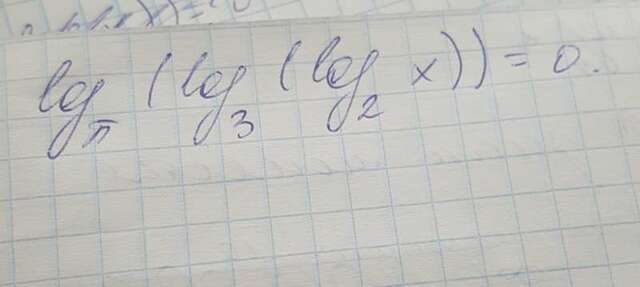 log_π (log_3 (log_2 x)) = 0.